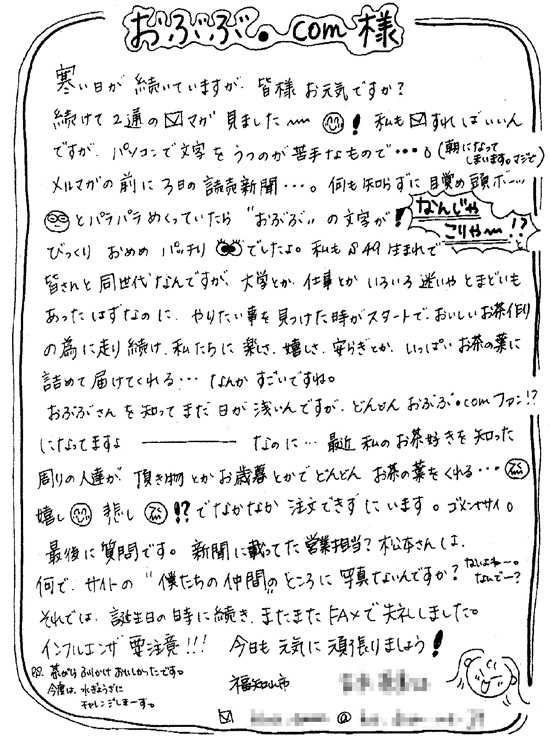 おぶぶ.com様
寒い日が続いていますが、皆様お元気ですか?
続けて2通の✉マガ見ました〜 ! 私も✉すればいいん
ですが、パソコンで文字をうつのが苦手なもので・・・。(朝になってしまいます。マジで)
メルマガの前に3日の読売新聞・・・。何も知らずに目覚め頭ボーッ
とパラパラめくっていたら"おぶぶ"の文字が! なんじゃこりゃ〜!?
びっくりおめめパッチリでしたよ。私もS49生まれで
皆さんと同世代なんですが、大学とか、仕事とかいろいろ迷いやとまどいも
あったはずなのに、やりたい事を見つけた時がスタートで、おいしいお茶作り
の為に走り続け、私たちに楽しさ、嬉しさ、安らぎとか、いっぱいお茶の葉に
詰めて届けてくれる・・・なんかすごいですね。
おぶぶさんを知ってまだ日が浅いんですが、どんどんおぶぶ.comファン!?
になってますよ ――― なのに…最近私のお茶好きを知った
周りの人達が、頂き物とかお歳暮とかでどんどんお茶の葉をくれる・・・
嬉し 悲し !?でなかなか注文できずにいます。ゴメンナサイ。
最後に質問です。新聞に載ってた営業担当?松本さんは、
何で、サイトの"僕たちの仲間"のところに写真ないんですか? ないよね〜。なんでー?
それでは、誕生日の時に続き、またまたFAXで失礼しました。
インフルエンザ要注意!!! 今日も元気に頑張りましょう!
P.S. 茶がらふりかけおいしかったです。
今度は、水ぎょうざに
チャレンジしまーす。
福知山市
✉ @